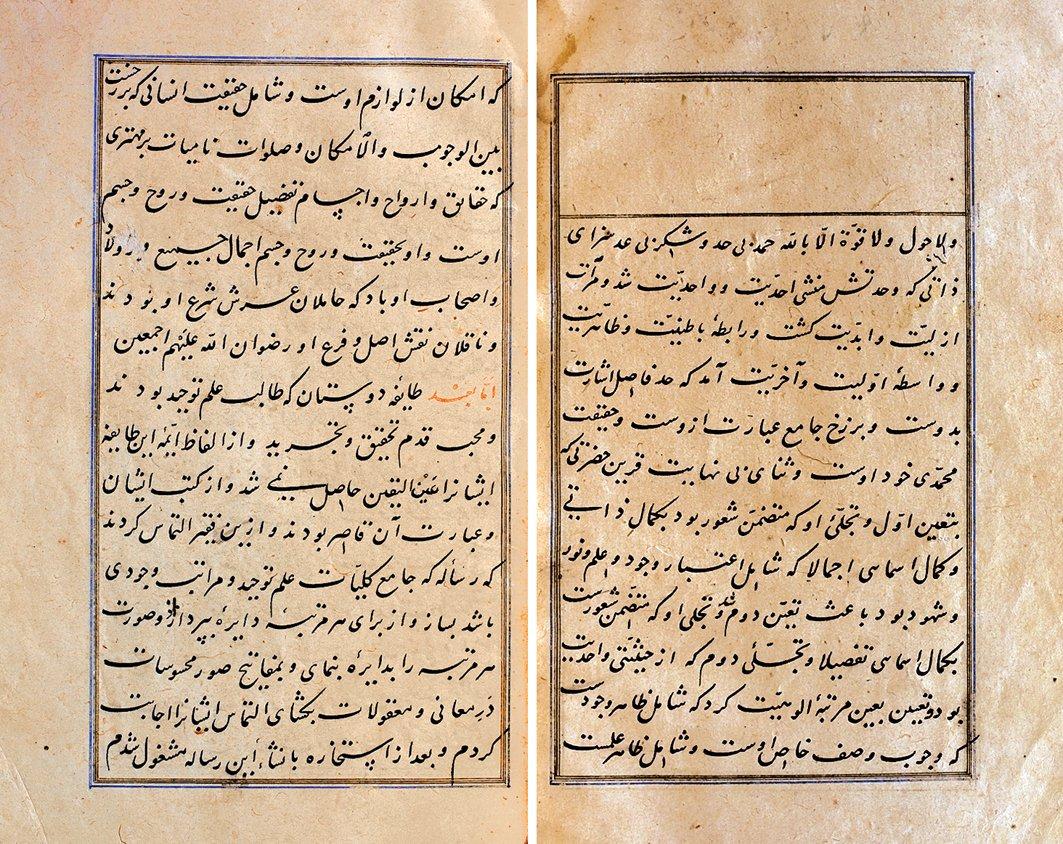 ولا حول ولا قوة الّا بالله حمد بی حد و شکر بی عد سزای
ذاتی که وحدتش منشی احدیّت و واحدیّت شد و مرآت
ازلیّت و ابدیّت گشت و رابطهٔ باطنیّت و ظاهریّت
و واسطهٔ اوّلیت و آخریّت آمد که حد فاصل اشارت
بدوست و برزخ جامع عبارت ازوست و حقیقت
محمّدی خود اوست و ثنای بی نهایت قرین حضرتی که
بتعین اوّل و تجلّی او که متضمن شعور بود بکمال ذاتی
و کمال اسماسی اجمالا که شامل اعتبار وجود و علم و نور
و شهود بود باعث تعیّن دوم شد و تجلی او که متضمن شعورست
بکمال اسماسی تفصیلا و تجلّی دوم که از حیثیتی واحدیت
بود و تعین بعین مرتبهٔ الوهیّت کرد که شامل ظاهر وجودست
که وجوب وصف خاص اوست و شامل ظاهر علمست
که امکان از لوازم اوست و شامل حقیقت انسانی که برزخست
بین الوجوب والامکان و صلوات نامیات بر مهتری
که حقائق و ارواح و اجسام تفصیل حقیقت و روح و جسم
اوست و او بحقیقت و روح و جسم اجمال جمیع و بر اولاد
و اصحاب او باد که حاملان عرش شرع او بودند
و ناقلان نقش اصل و فرع او رضوان الله علیهم اجمعین
امّا بعد طایفهٔ دوستان که طالب علم توحید بودند
و محب قدم تحقیق و تجرید و از الفاظ ایمّهٔ این طایفه
ایشانرا عین الیقین حاصل نمی شد و از کتب ایشان
و عبارت آن قاصر بودند و ازین فقیر التماس کردند
که رساله که جامع کلیّات علم توحید و مراتب وجودی
باشد بساز و از برای هر مرتبهٔ دایرهٔ بپرداز و صورت
هر مرتبه را بدایرهٔ بنمای و بمفاتیح صور محسوسات
در معانی و معقولات بگشای التماس ایشانرا اجابت
کردم و بعد از استخاره بانشاء این رساله مشغول شدم